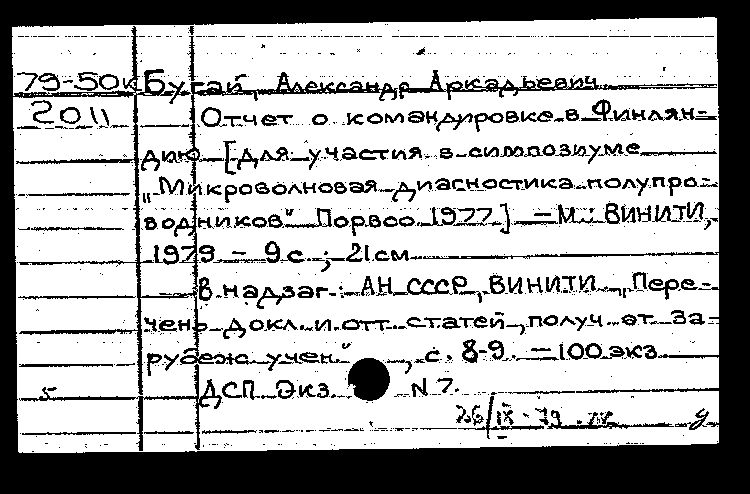 79-50к Бугай, Александр Аркадьевич
2011 Отчет о командировке в Финлян-
дию [для участия в симпозиуме
„Микроволновая диагностика полупро-
водников" Порвоо 1977] – М.: ВИНИТИ,
1979 – 9 с.; 21 см
В надзаг.: АН СССР, ВИНИТИ „Пере-
чень докл. и отт. статей, получ. от за-
рубеж. учен.", с. 8-9. – 100 экз.
5 ДСП Экз. N 7.
26/IX-79